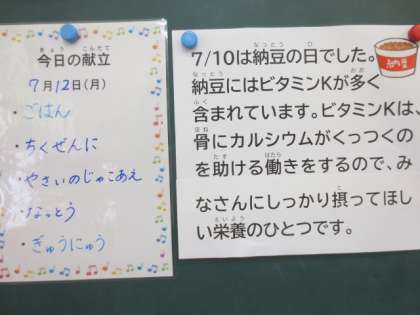 今日の献立
7月12日(月)
・ごはん
・ちくぜんに
・やさいのじゃこあえ
・なっとう
・ぎゅうにゅう
7/10は納豆の日でした。
納豆にはビタミンKが多く
含まれています。ビタミンKは、
骨にカルシウムがくっつくの
を助ける働きをするので、み
なさんにしっかり摂ってほし
い栄養のひとつです。
納豆